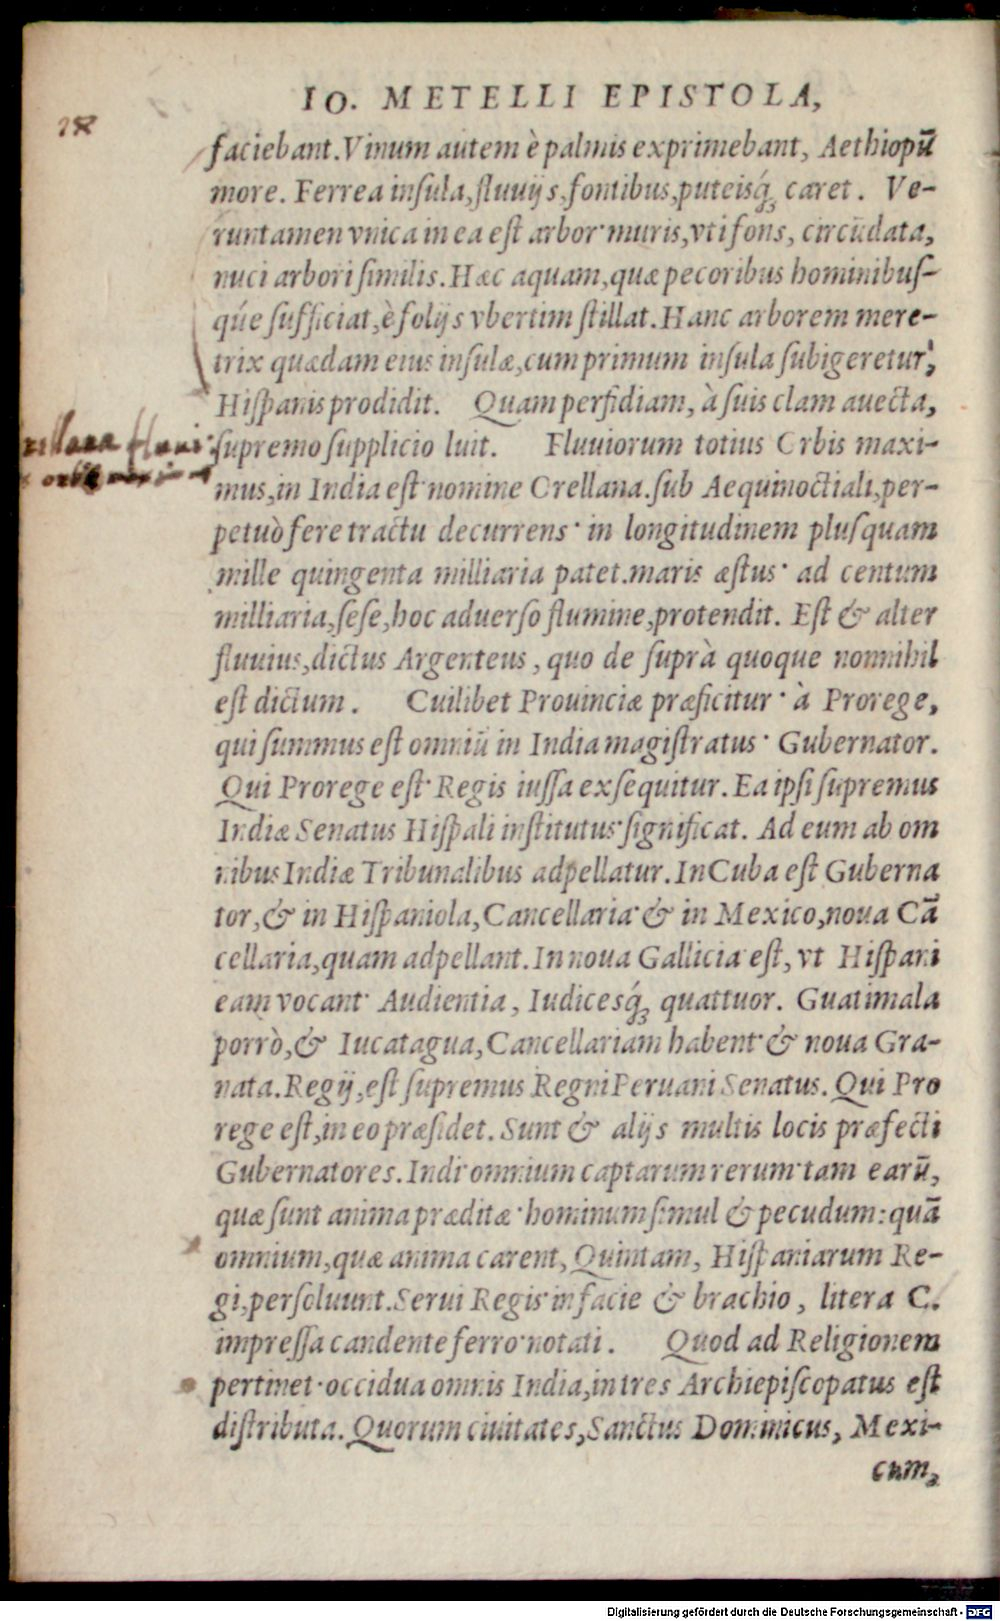 IO. METELLI EPISTOLA,
faciebant. Vinum autem è palmis exprimebant, Aethiopũ
more. Ferrea inſula, fluuijs, fontibus, puteisq́ꝫ caret. Ve-
runtamen vnica in ea eſt arbor· muris, vti fons, circũdata,
nuci arbori ſimilis. Hæc aquam, quæ pecoribus hominibuſ-
q́ue ſufficiat, è folijs vbertim ſtillat. Hanc arborem mere-
trix quædam eius inſulæ, cum primum inſula ſubigeretur,
Hiſpanis prodidit. Quam perfidiam, à ſuis clam auecta,
ſupremo ſupplicio luit. Fluuiorum totius Orbis maxi-
mus, in India eſt· nomine Orellana. ſub Aequinoctiali, per-
petuò fere tractu decurrens· in longitudinem pluſquam
mille quingenta milliaria patet. maris æſtus· ad centum
milliaria, ſeſe, hoc aduerſo flumine, protendit. Eſt & alter
fluuius, dictus Argenteus, quo de ſuprà quoque nonnihil
eſt dictum. Cuilibet Prouinciæ præficitur· à Prorege,
qui ſummus eſt omniũ in India magiſtratus· Gubernator.
Qui Prorege eſt· Regis iuſſa exſequitur. Ea ipſi ſupremus
Indiæ Senatus Hiſpali inſtitutus· ſignificat. Ad eum ab om
nibus Indiæ Tribunalibus adpellatur. In Cuba eſt Guberna
tor, & in Hiſpaniola, Cancellaria· & in Mexico, noua Cã
cellaria, quam adpellant. In noua Gallicia· eſt, vt Hiſpani
eam vocant· Audientia, Iudicesq́ꝫ quattuor. Guatimala
porrò, & Iucatagua, Cancellariam habent· & noua Gra-
nata. Regij, eſt ſupremus Regni Peruani Senatus. Qui Pro
rege eſt, in eo præſidet. Sunt & alijs multis locis præfecti
Gubernatores. Indi· omnium captarum rerum· tam earũ,
quæ ſunt anima præditæ· hominum ſimul & pecudum: quã
omnium, quæ anima carent, Quintam, Hiſpaniarum Re-
gi, perſoluunt. Serui Regis· in facie & brachio, litera C.
impreſſa candente ferro· notati. Quod ad Religionem
pertinet· occidua omnis India, in tres Archiepiſcopatus eſt
diſtributa. Quorum ciuitates, Sanctus Dominicus, Mexi-
cum,
Digitalisierung gefördert durch die Deutsche Forschungsgemeinschaft - DFG